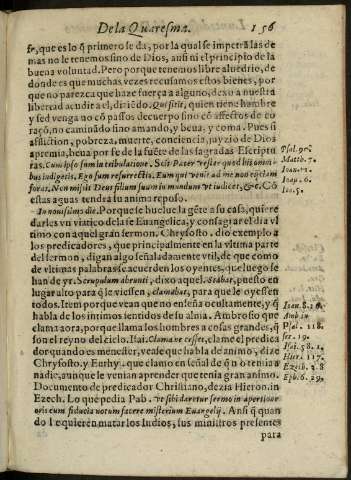 De la Quaresma. 156
fe, que es lo q̃ primero se da, por la qual se imperã las de
mas no le tenemos sino de Dios, aũ ni el principio de la
buena voluntad. Pero porque tenemos libre aluedrio, de
donde viene que muchas vezes recusamos estos bienes, por
que no parezca que haze fuerça a alguno, dexo a nuestra
libertad acudir a el, diziẽdo. Qui sitit, quien tiene hambre
y sed venga no cõ passos de cuerpo sino cõ affectos de co
raçõ, no caminãdo sino amando, y beua, y coma. Pues si
afliction, pobreza, muerte, conciencia, juyzio de Dios
apremia, beua por se de la fuẽte de las sagradas Escriptu
ras. Cum ipso sum in tribulatione. Scit Pater vester quod his omni
bus indigetis, Ego sum resurrectio. Eum qui venit ad me non eijciam
foras. Non misit Deus filium suum in mundum vt iudicet, &c. Cõ
estas aguas tendra su anima reposo.
In nouissimo die. Porque se huelue la gẽte a su casa, quiere
darles vn viatico de la fe Euangelica, y consagrar el dia vl
timo con aquel gran sermon. Chrysosto. dio exemplo a
los predicadores, que principalmente en la vltima parte
del sermon, digan algo señaladamente vtil, de que como
de vltimas palabras se acuerden los oyentes, que luego se
han de yr. Scrupulum abrumit, dixo aquel. Stabat, puesto en
lugar alto para q̃ le viessen, clamabat, para que le oyessen
todos. Item porque vean que no enseña ocultamente, y q̃
habla de los intimos sentidos de su alma. Ambrosio que
clama aora, porque llama los hombres a cosas grandes, q̃
son el reyno del cielo. Isai. Clama ne cesses, clame el predica
dor quando es menester, vease que habla de animo, dize
Chrysost. y Euthy. que clamo en señal de q̃ no temia a
nadie, aunque le venian aprender que tenia gran animo.
Documento de predicador Christiano, dezia Hieron. in
Ezech. Lo que pedia Pab. vt sibi daretur sermo in apertione
oris cum fiducia notum facere misterium Euangelij. Ansi q̃ quan
do le quieren matar los Iudios, sus ministros presente
para
Psal. 90.
Matth. 7.
Ioan. 11.
Ioan. 6.
Io. 5.
Ioan. 8. 26.
Amb. in
Psal. 118.
ser. 19.
Isai. 58. 1.
Hier. 117.
Ezech. 2. 8
Eph. 6. 29.